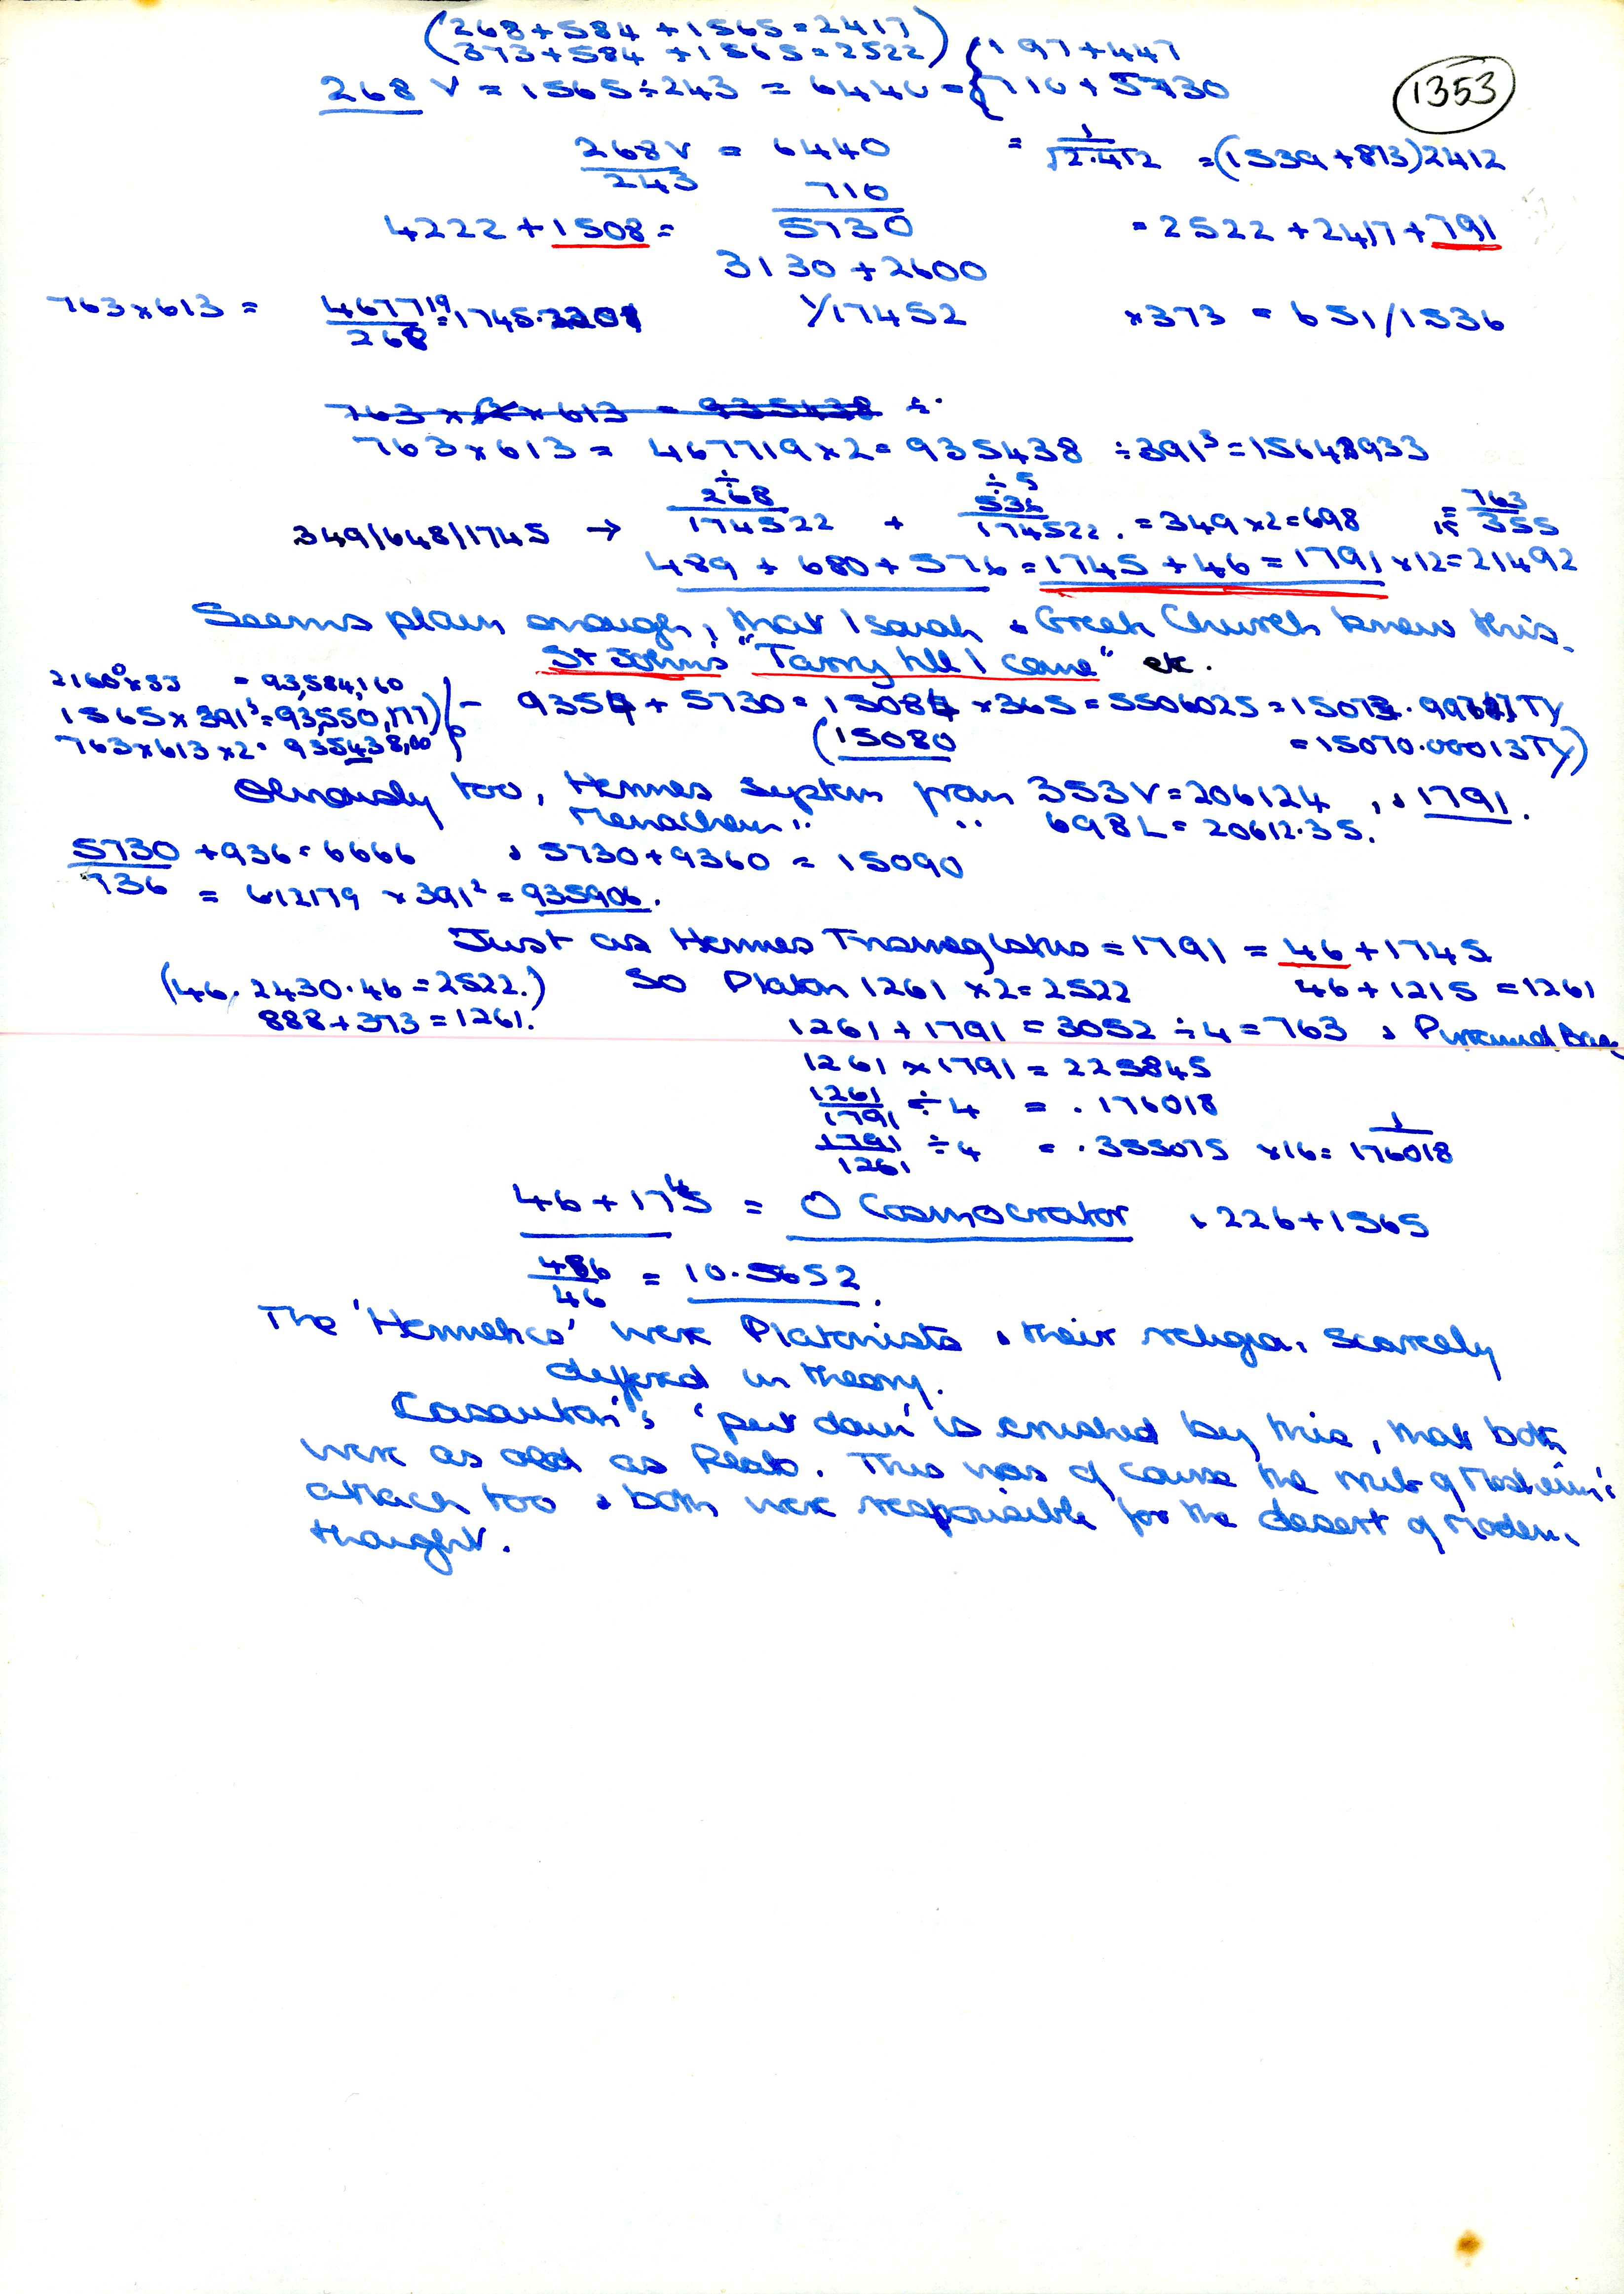 (268+584 +1565=2417)
(373+584 +1565=2522) { 197+447
268 V = 1565÷243 = 6440 = { 710 + 5730
1353
268V/243 = 6440 = 1/√2.412 = (1539+873)2412
710
4222+1508 = 5730 = 2522+2417+791
3130+2600
763×613 = 467719/268 = 1745. 1/17452 ×373 = 651/1536
763 × 2 × 613 = 935438 ÷
763×613 = 467719×2= 935438 ÷391³=15648933
349/648/1745 → ÷268/174522 + ÷536/174522. = 349×2=698 = 763/355
489 + 680 + 576 = 1745 + 46 = 1791 ×12=21492
Seems plain enough, that Isaiah & Greek Church knew this.
St Johns "Tarry till I come" etc.
= 93,584,160
1565×391³=93,550,177 ) - 9354 + 5730=15084 ×365=5506025= TY
763×613×2= 93,5438,00 (15080 =15070.00013TY)
Obviously too, Hermes System from 353V=206124, & 1791.
Menachem " " 698L=20612.35.
5730 +936=6666 & 5730+9360 = 15090
5730/936 = 612179 ×391²=935906.
Just as Hermes Trismegistus =1791 = 46+1745
(46.2430.46=2522.) So Platon 1261 ×2=2522 46+1215 =1261
888+373=1261. 1261+1791 = 3052 ÷4=763 & Pyramid Base
1261 × 1791 = 225845
1261/1791 ÷4 = .176018
1791/1261 ÷4 = .355075 ×16= 1/176018
46+1745 = O Cosmocrator & 226+1565
486/46 = 10.5652.
The 'Hermetics' were Platonists & their religion, scarcely
differed in theory.
Casaubon's 'put down' is crushed by this, that both
were as old as Plato. This was of course the nub of Mosheim's
attack too & both were responsible for the desert of modern
thought.